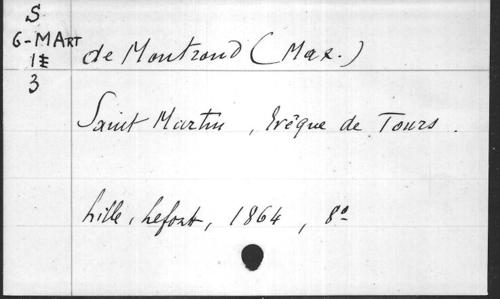 S
G-MART
1E
3
de Montrond (Max.)
Saint Martin, Evêque de Tours.
Lille, Lefort, 1864, 8º